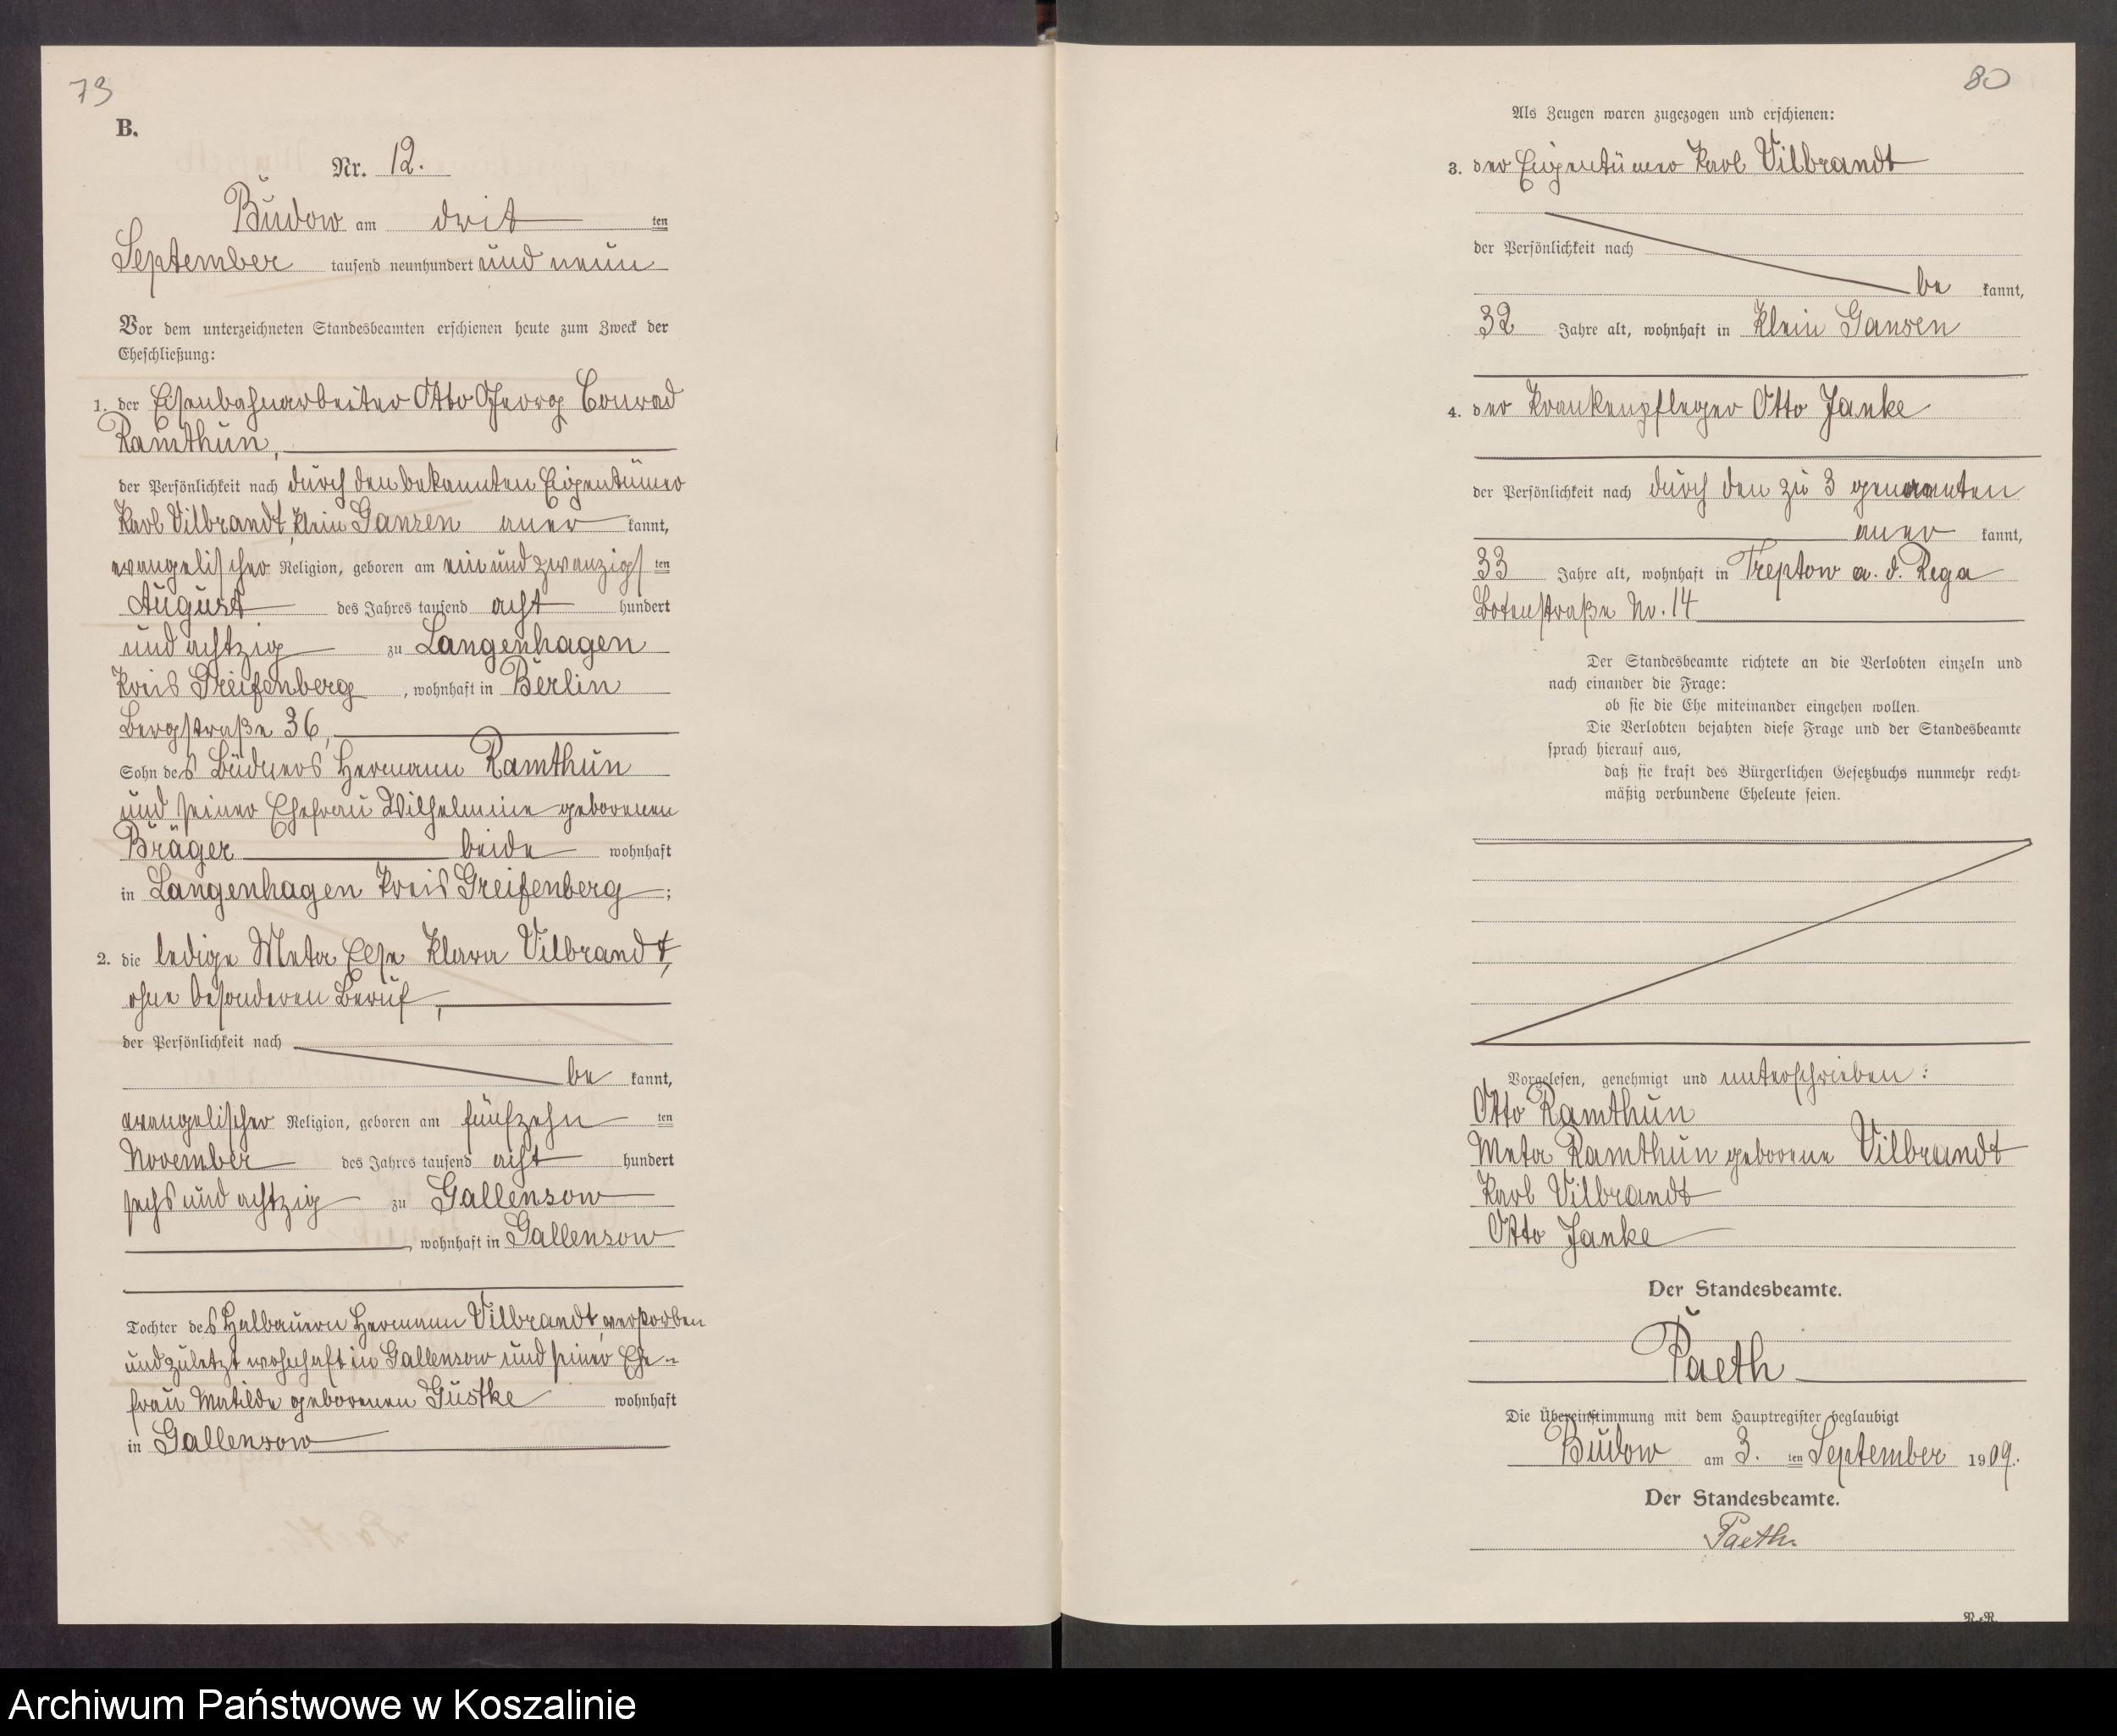 73
B.
Nr. 12.
Budow am drit ten
September tausend neunhundert und neun
Vor dem unterzeichneten Standesbeamten erschienen heute zum Zweck der
Eheschließung:
1. der Eisenbahnarbeiter Otto Georg Conrad
Ramthun,
der Persönlichkeit nach durch den bekannten Eigentümer
Karl Vilbrandt, Klein Gansen aner kannt,
evangelischer Religion, geboren am ein und zwanzigs ten
August des Jahres tausend acht hundert
und achtzig zu Langenhagen
Kreis Greifenberg, wohnhaft in Berlin
Bergstraße 36,
Sohn des Büdners Hermann Ramthun
und seiner Ehefrau Wilhelmine geborenen
Bräger beide wohnhaft
in Langenhagen Kreis Greifenberg;
2. die ledige Meta Else Klara Vilbrandt,
ohne besonderen Beruf,
der Persönlichkeit nach
be kannt,
evangelischer Religion, geboren am fünfzehn ten
November des Jahres tausend acht hundert
sechs und achtzig zu Gallensow
, wohnhaft in Gallensow
Tochter des Halbbauern Hermann Vilbrandt, verstorben
und zuletzt wohnhaft in Gallensow und seiner Ehe-
frau Matilde geborenen Gustke wohnhaft
in Gallensow
80
Als Zeugen waren zugezogen und erschienen:
3. der Eigentümer Karl Vilbrandt
der Persönlichkeit nach
be kannt,
32 Jahre alt, wohnhaft in Klein Gansen
4. der Krankenpfleger Otto Janke
der Persönlichkeit nach durch den zu 3 genannten
aner kannt,
33 Jahre alt, wohnhaft in Treptow a. d. Rega
Botenstraße No. 14
Der Standesbeamte richtete an die Verlobten einzeln und
nach einander die Frage:
ob sie die Ehe miteinander eingehen wollen.
Die Verlobten bejahten diese Frage und der Standesbeamte
sprach hierauf aus,
daß sie kraft des Bürgerlichen Gesetzbuchs nunmehr recht-
mäßig verbundene Eheleute seien.
Vorgelesen, genehmigt und unterschrieben:
Otto Ramthun
Meta Ramthun geborene Vilbrandt
Karl Vilbrandt
Otto Janke
Der Standesbeamte.
Paeth
Die Übereinstimmung mit dem Hauptregister beglaubigt
Budow am 3. ten September 1909.
Der Standesbeamte.
Paeth.
Archiwum Państwowe w Koszalinie